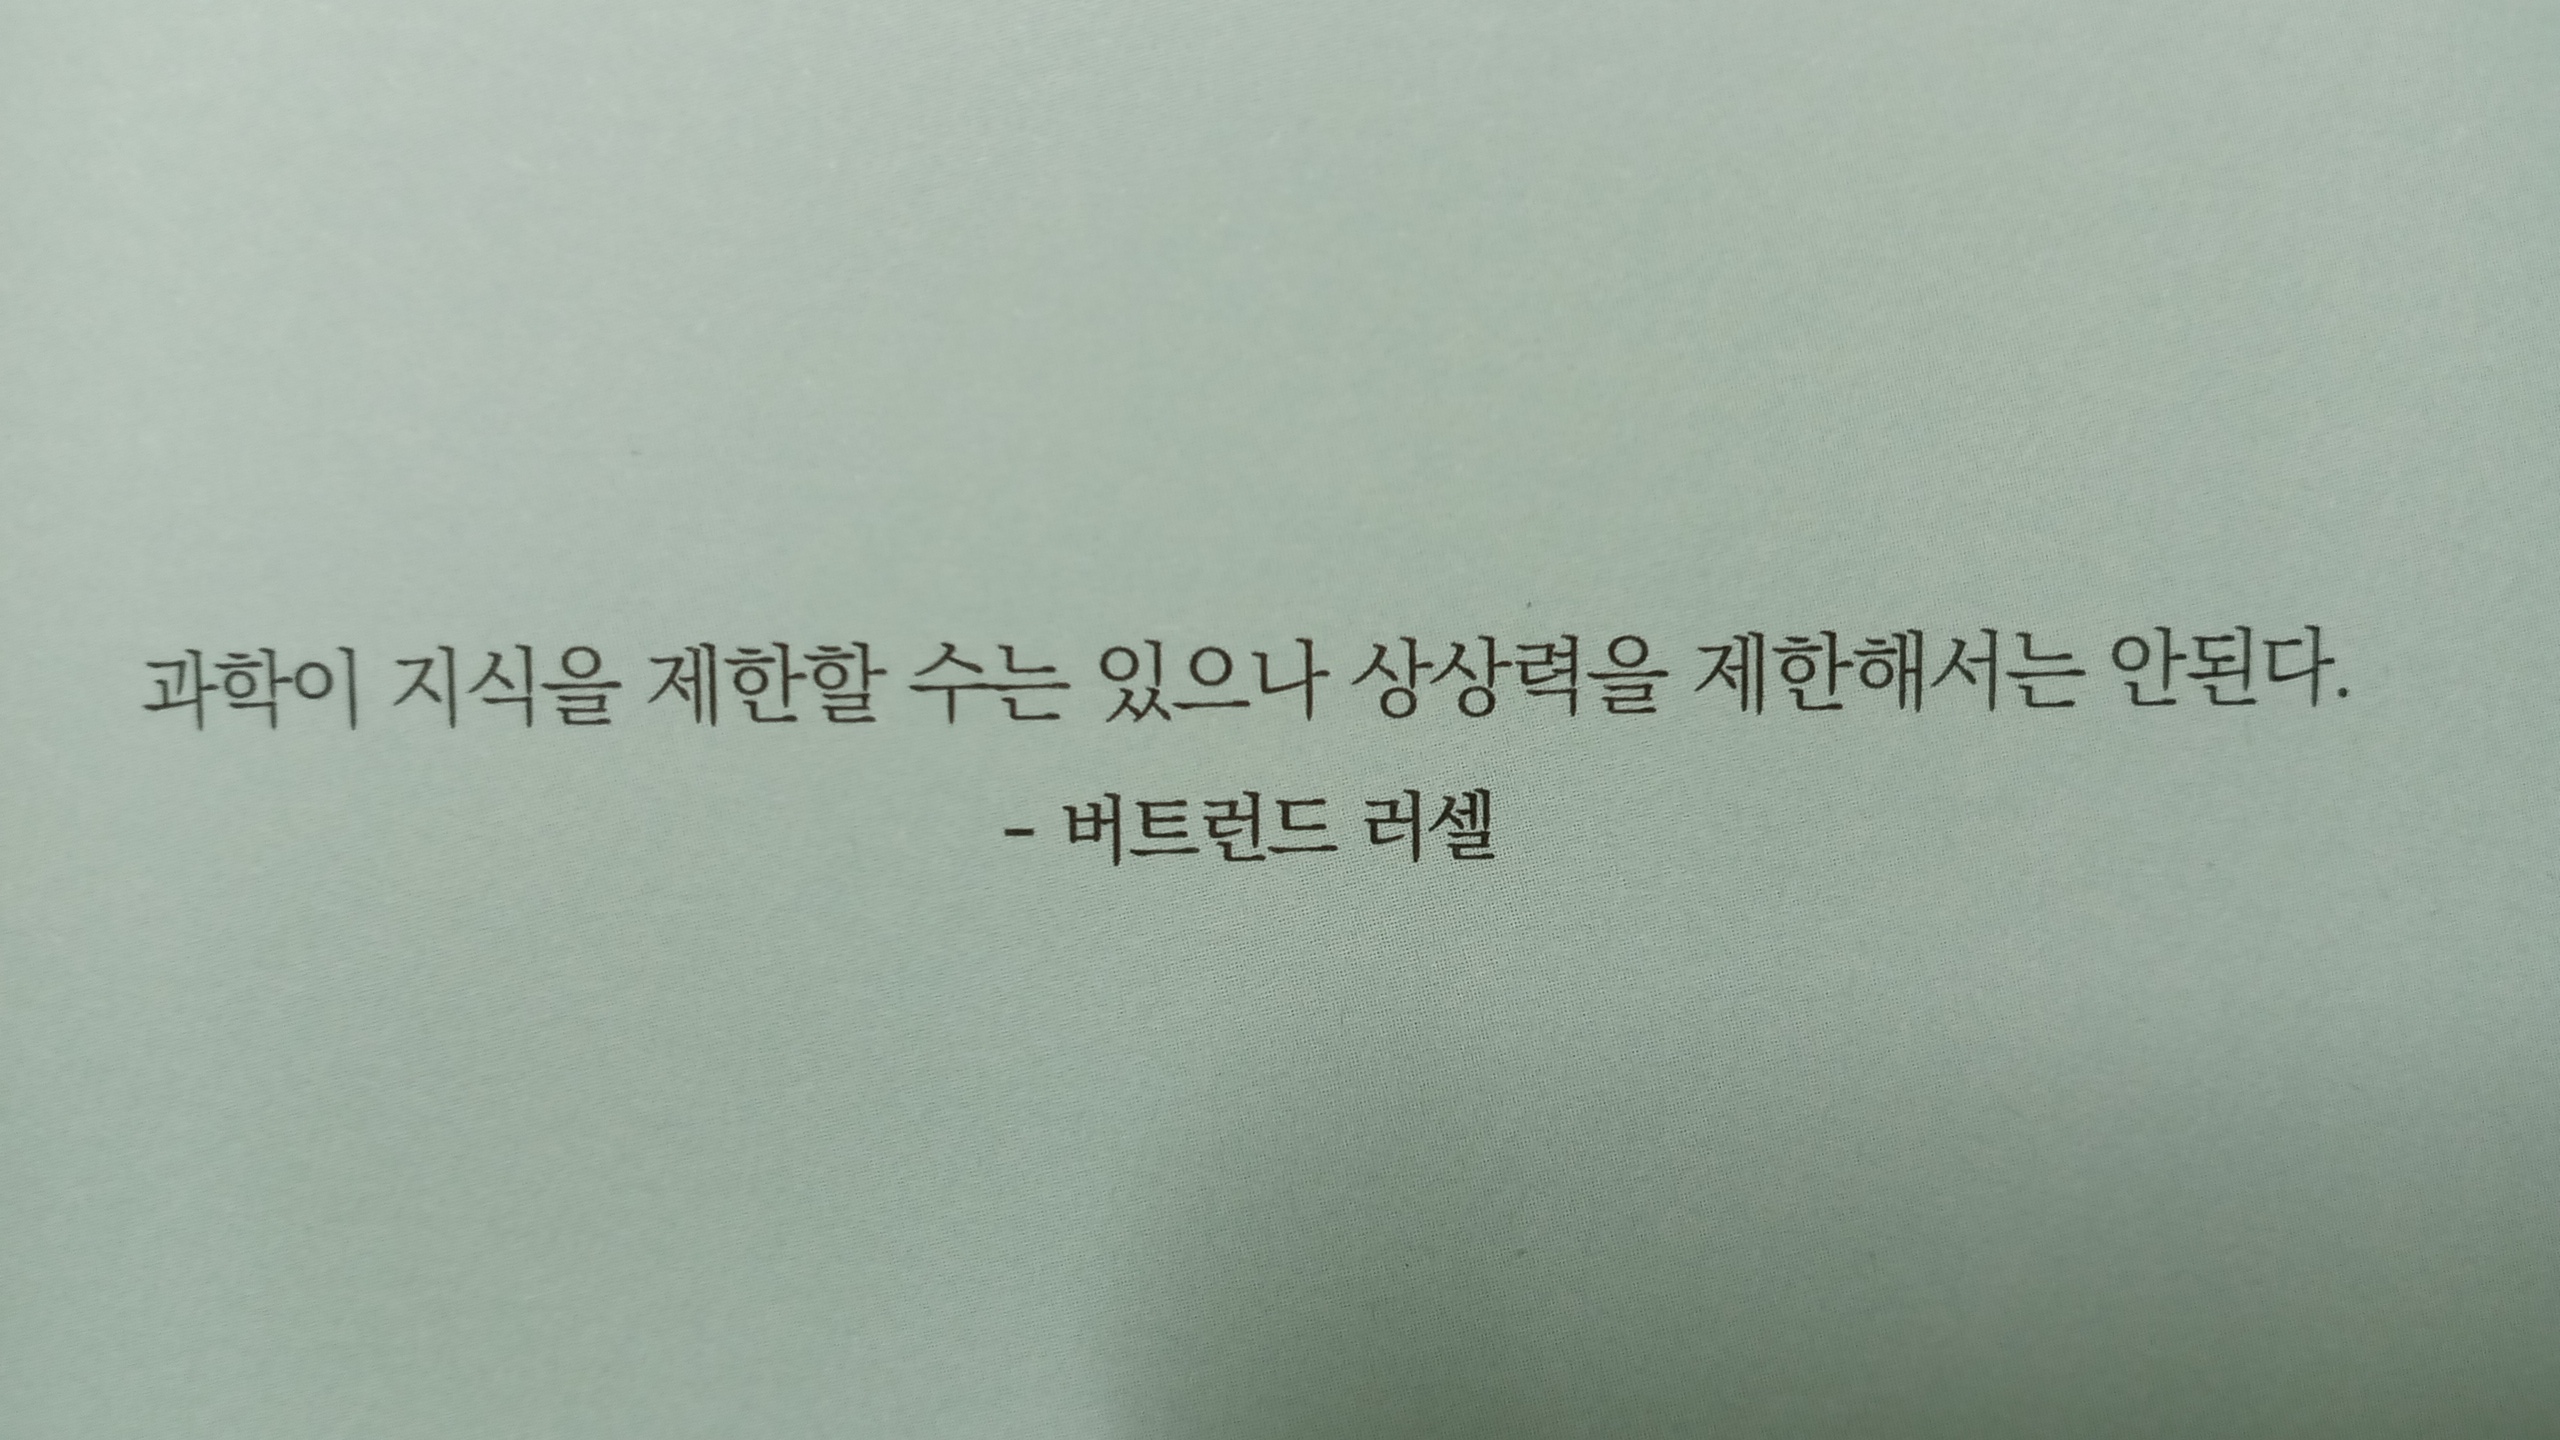 과학이 지식을 제한할 수는 있으나 상상력을 제한해서는 안된다.
- 버트런드 러셀